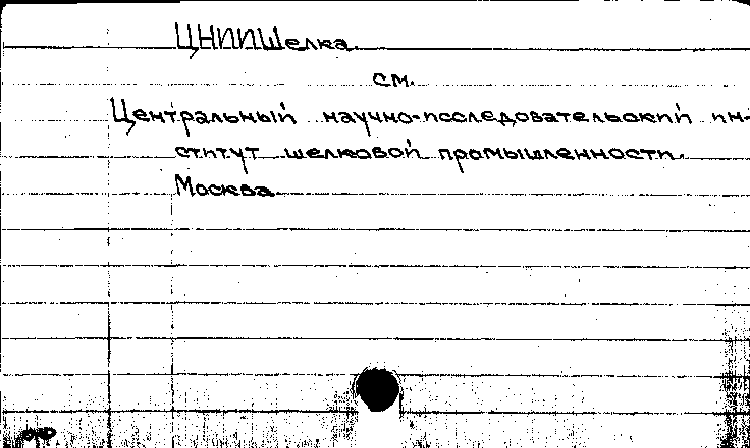 ЦНИИШелка.
см.
Центральный научно-исследовательский ин-
ститут шелковой промышленности.
Москва.